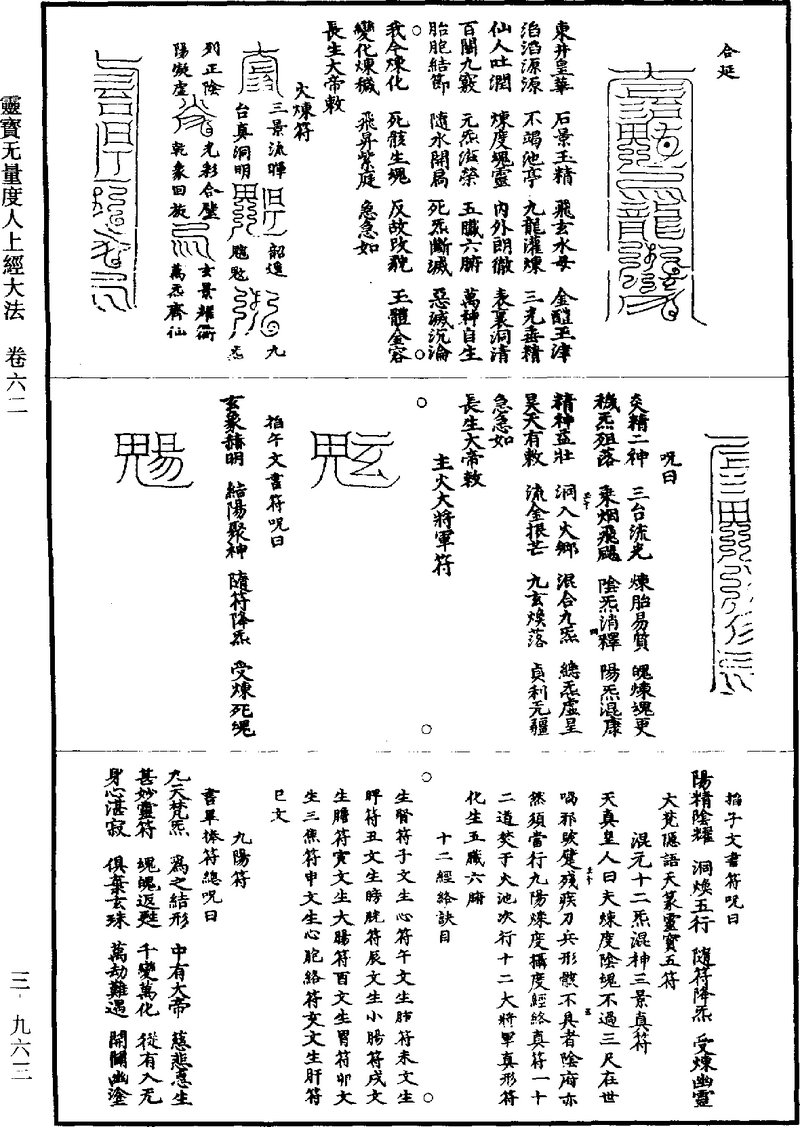 靈寶无量度人上經大法　卷六二
三·九六三
合延
東井皇華　石景玉精　飛玄水母　金醴玉津
滔滔源源　不竭池亭　九龍灌煉　三光垂精
仙人吐潤　煉度魂靈　內外朗徹　表裏洞清
百關九竅　元炁滋榮　五臟六腑　萬神自生
胎胞結節　隨水開扃　死炁斷滅　惡滅沉淪
我今煉化　死骸生魂　反故改貌　玉體金容
變化煉穢　飛昇紫庭　急急如
長生大帝敕
火煉符
三景流暉
韶煌
九
台真洞明
魒魁
炁
列正陰
光彩合璧
玄景耀衝
陽凝虛
乾象回旋
萬炁齊仙
呪曰
炎精二神　三台流光　煉胎易質　魄煉魂更
穢炁殂落　乘烟飛颺　陰炁消釋　陽炁混康
精神益壯　洞入火鄉　混合九炁　總炁虛皇
昊天有敕　流金振芒　九玄煥落　貞利无疆
急急如
長生大帝敕
主火大將軍符
掐午文書符呪曰
玄象赫明　結陽聚神　隨符降炁　受煉死魂
掐子文書符呪曰
陽精陰耀　洞煥五行　隨符降炁　受煉幽靈
大梵隱語天篆靈寶五符
混元十二炁混神三景真符
天真皇人曰夫煉度陰魂不過三尺在世
喎邪跛躄殘疾刀兵形骸不具者陰府亦
然須當行九陽煉度攝度經絡真符一十
二道焚于火池次行十二大將軍真形符
化生五臟六腑
十二經絡訣目
生腎符子文生心符午文生肺符未文生
脾符丑文生膀胱符辰文生小腸符戌文
生膽符寅文生大腸符酉文生胃符卯文
生三焦符申文生心胞絡符亥文生肝符
巳文
九陽符
書畢捧符總呪曰
九天梵炁　為之結形　中有大帝　慈悲憙生
甚妙靈符　魂魄返甦　千變萬化　從有入无
身心湛寂　俱棄玄珠　萬劫難遇　開闢幽塗